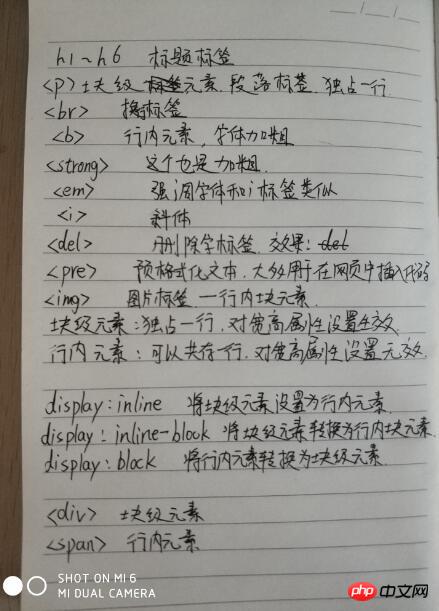 h1~h6 标题标签
<p> 块级元素.段落标签.独占一行
<br> 换行标签
<b> 行内元素,字体加粗
<strong> 这个也是加粗.
<em> 强调字体和i标签类似
<i> 斜体
<del> 删除字标签.效果:del
<pre> 预格式化文本.大多用于在网页中插入代码
<img> 图片标签—行内块元素.
块级元素:独占一行.对宽高属性设置生效.
行内元素:可以共存一行.对宽高属性设置无效.
display:inline 将块级元素设置为行内元素.
display:inline-block 将块级元素转换为行内块元素.
display:block 将行内元素转换为块级元素.
<div> 块级元素
<span> 行内元素
SHOT ON MI 6
MI DUAL CAMERA
php中文网